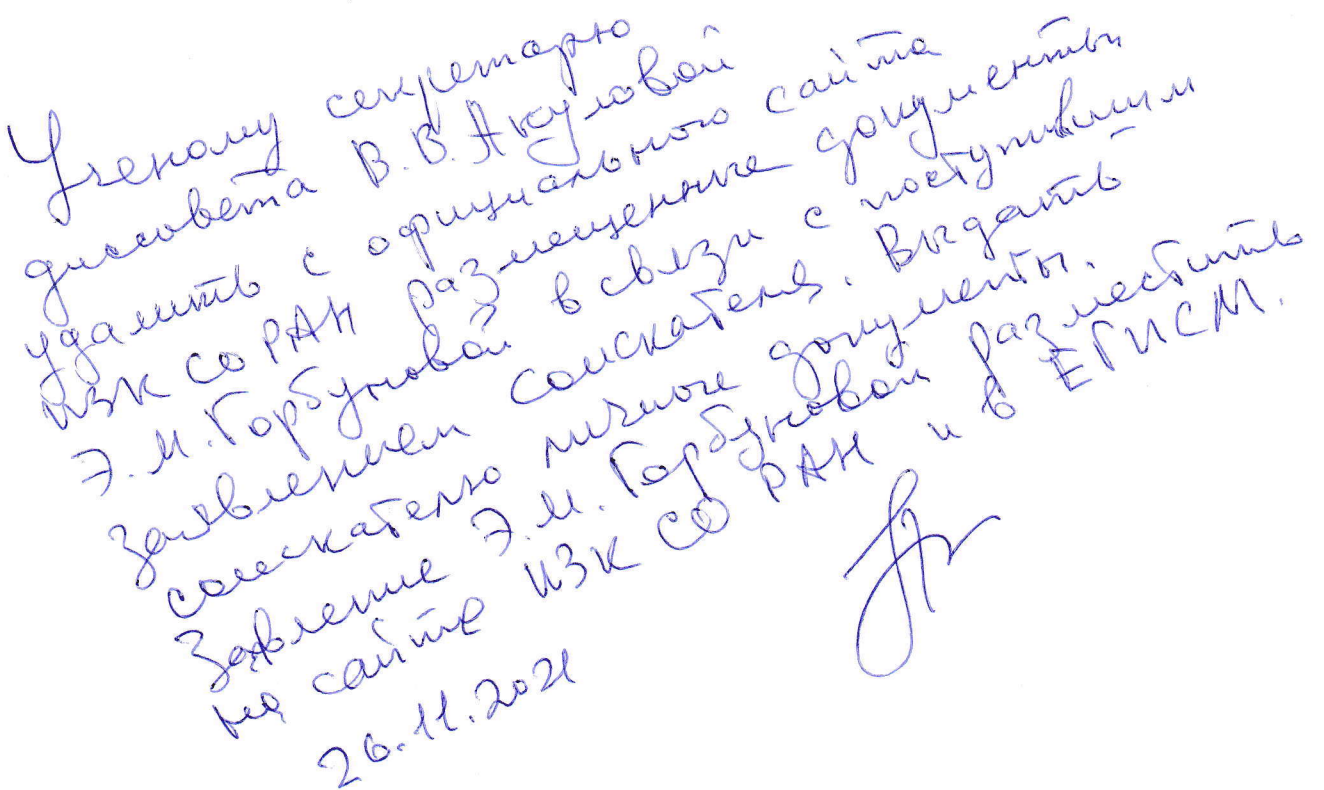 Ученому секретарю
диссовета В.В. Акуловой
удалить с официального сайта
ИЗК СО РАН размещенные документы
Э.М. Горбуновой в связи с поступившим
заявлением соискателя. Выдать
соискателю личные документы.
Заявление Э.М. Горбуновой разместить
на сайте ИЗК СО РАН и в ЕГИСМ.
26.11.2021